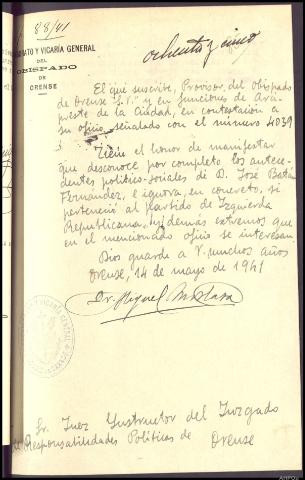 88/41
ochenta y cinco
Y VICARÍA GENERAL
DEL
OBISPADO
DE
ORENSE
El que suscribe, Provisor del Obispado
de Orense S.P. y en funciones de Arci-
preste de la Ciudad, en contestación a
su oficio, señalado con el número 4039
Tiene el honor de manifestar
que desconoce por completo los antece-
dentes político-sociales de D. José
Fernández, e ignora, en concreto, si
perteneció al partido de Izquierda
Republicana, y demás extremos que
en el mencionado oficio se interesan
Dios guarde a V. muchos años
Orense, 14 de mayo de 1941
Dr. Miguel
Sr. Juez Instructor del Juzgado
de Responsabilidades Políticas de Orense